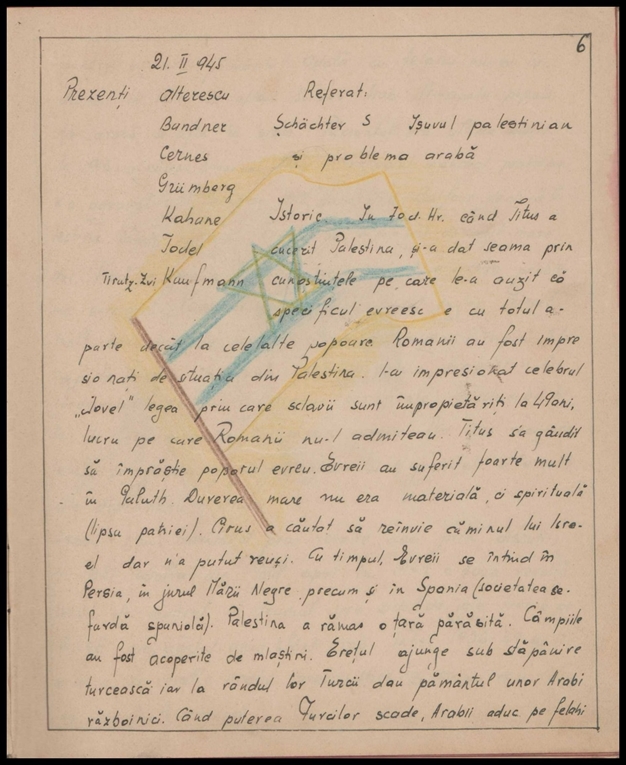 6
21. II 945
Prezenți Alterescu Referat:
Bundner Șchächter S Ișuvul palestinian
Cernes și problema arabă
Grümberg
Kahane Istoric In 70 d. Hr. când Titus a
Jodel cucerit Palestina, și-a dat seama prin
Tirutz-Zvi Kaufmann cunostințele pe care le-a auzit că
specificul evreesc e cu totul a-
parte decât la celelalte popoare Romanii au fost impre
sionati de situatia din Palestina. I-a impresionat celebrul
„Iovel" legea prin care sclavii sunt împropietăriți la 49 ani,
lucru pe care Romanii nu-l admiteau. Titus s'a gândit
să împrăștie poporul evreu. Evreii au suferit foarte mult
în Galuth. Duverea mare nu era materială, ci spirituală
(lipsa patriei). Cirus a căutat să reînvie căminul lui Isra-
el dar n'a putut reuși. Cu timpul, Evreii se întind în
Persia, în jurul Mării Negre precum și în Spania (societatea se-
fardă spaniolă). Palestina a rămas o țară părăsită. Câmpiile
au fost acoperite de mlaștini. Erețul ajunge sub stăpânire
turcească iar la rândul lor Turcii dau pământul unor Arabi
războinici. Când puterea Turcilor scade, Arabii aduc pe felahi